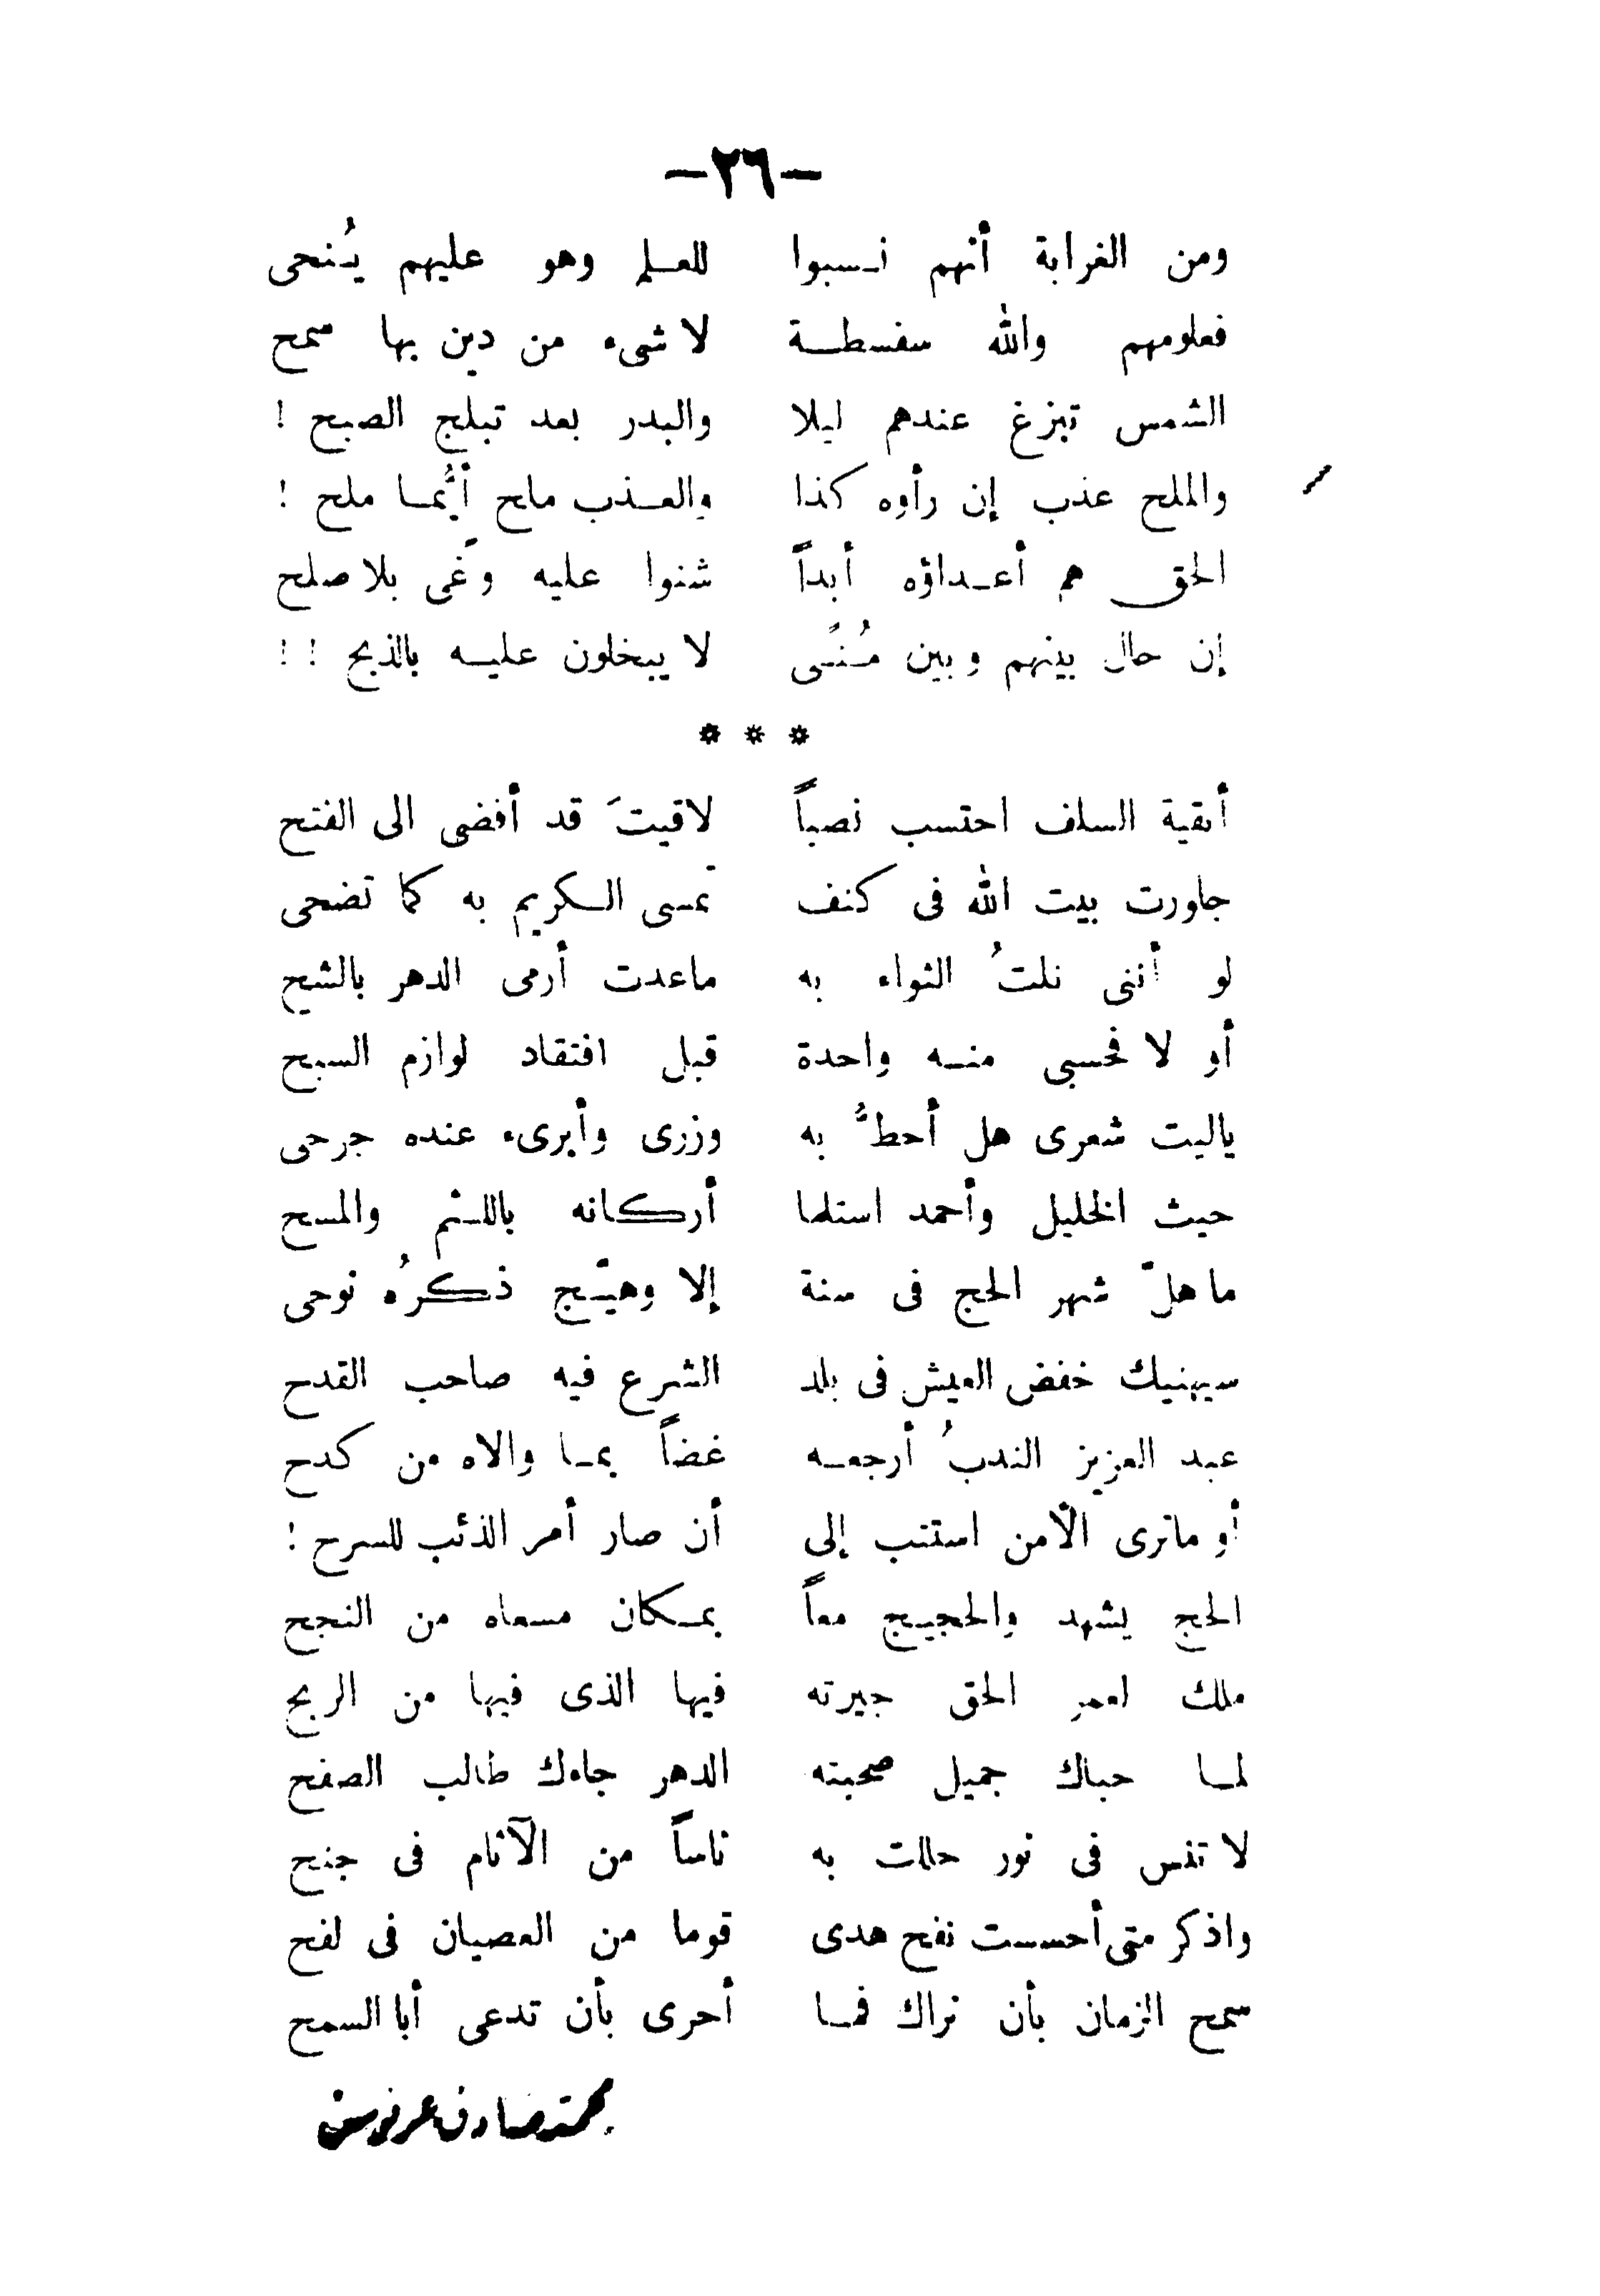 —٢٦—
ومن الغرابة أنهم نسبوا للعلم وهو عليهم يُنحى
فعلومهم والله سفسطة لا شىء من دين بها سمح
الشمس تبزغ عندهم ليلا والبدر بعد تبلج الصبح !
والملح عذب إن رأوه كذا والعذب ملح أيُّما ملح !
الحق هم أعداؤه أبداً شنوا عليه وغًى بلا صلح
إن حال بينهم وبين مُنًى لا يبخلون عليه بالذبح ! !
* * *
أبقية السلف احتسب نصباً لاقيتَ قد أفضى الى الفتح
جاورت بيت الله فى كنف تمسى الكريم به كما تضحى
لو أننى نلتُ الثواء به ماعدت أرمى الدهر بالشيح
أو لا فحسبى منه واحدة قبل افتقاد لوازم السبح
ياليت شعرى هل أحطُّ به وزرى وأبرىء عنده جرحى
حيث الخليل وأحمد استلما أركانه باللثم والمسح
ما هلّ شهر الحج فى سنة إلا وهيّج ذكرُه نوحى
سيهنيك خفض العيش فى بلد الشرع فيه صاحب القدح
عبد العزيز الندبُ أرجعه غضاً بما والاه من كدح
أو ماترى الأمن استتب إلى أن صار أمر الذئب للسرح !
الحج يشهد والحجيج معاً بمكان مسعاه من النجح
ملك لعمر الحق جيرته فيها الذى فيها من الربح
لما حباك جميل صحبته الدهر جاءك طالب الصفح
لا تنس فى نور حللت به ناساً من الآثام فى جنح
واذكر متى أحسست نفح هدى قوما من العصيان فى لفح
سمح الزمان بأن نراك فما أحرى بأن تدعى أبا السمح
محمد صادق عرنوس